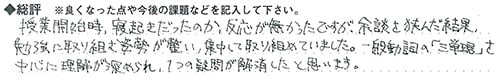 ◆総評 ※良くなった点や今後の課題などを記入して下さい。
授業開始時、寝起きだったのか、反応が無かったですが、余談を挟んだ結果、
勉強に取り組む姿勢が整い、集中して取り組めていました。一般動詞の「三単現」を
中心に理解が深められ、1つの疑問が解消したと思います。